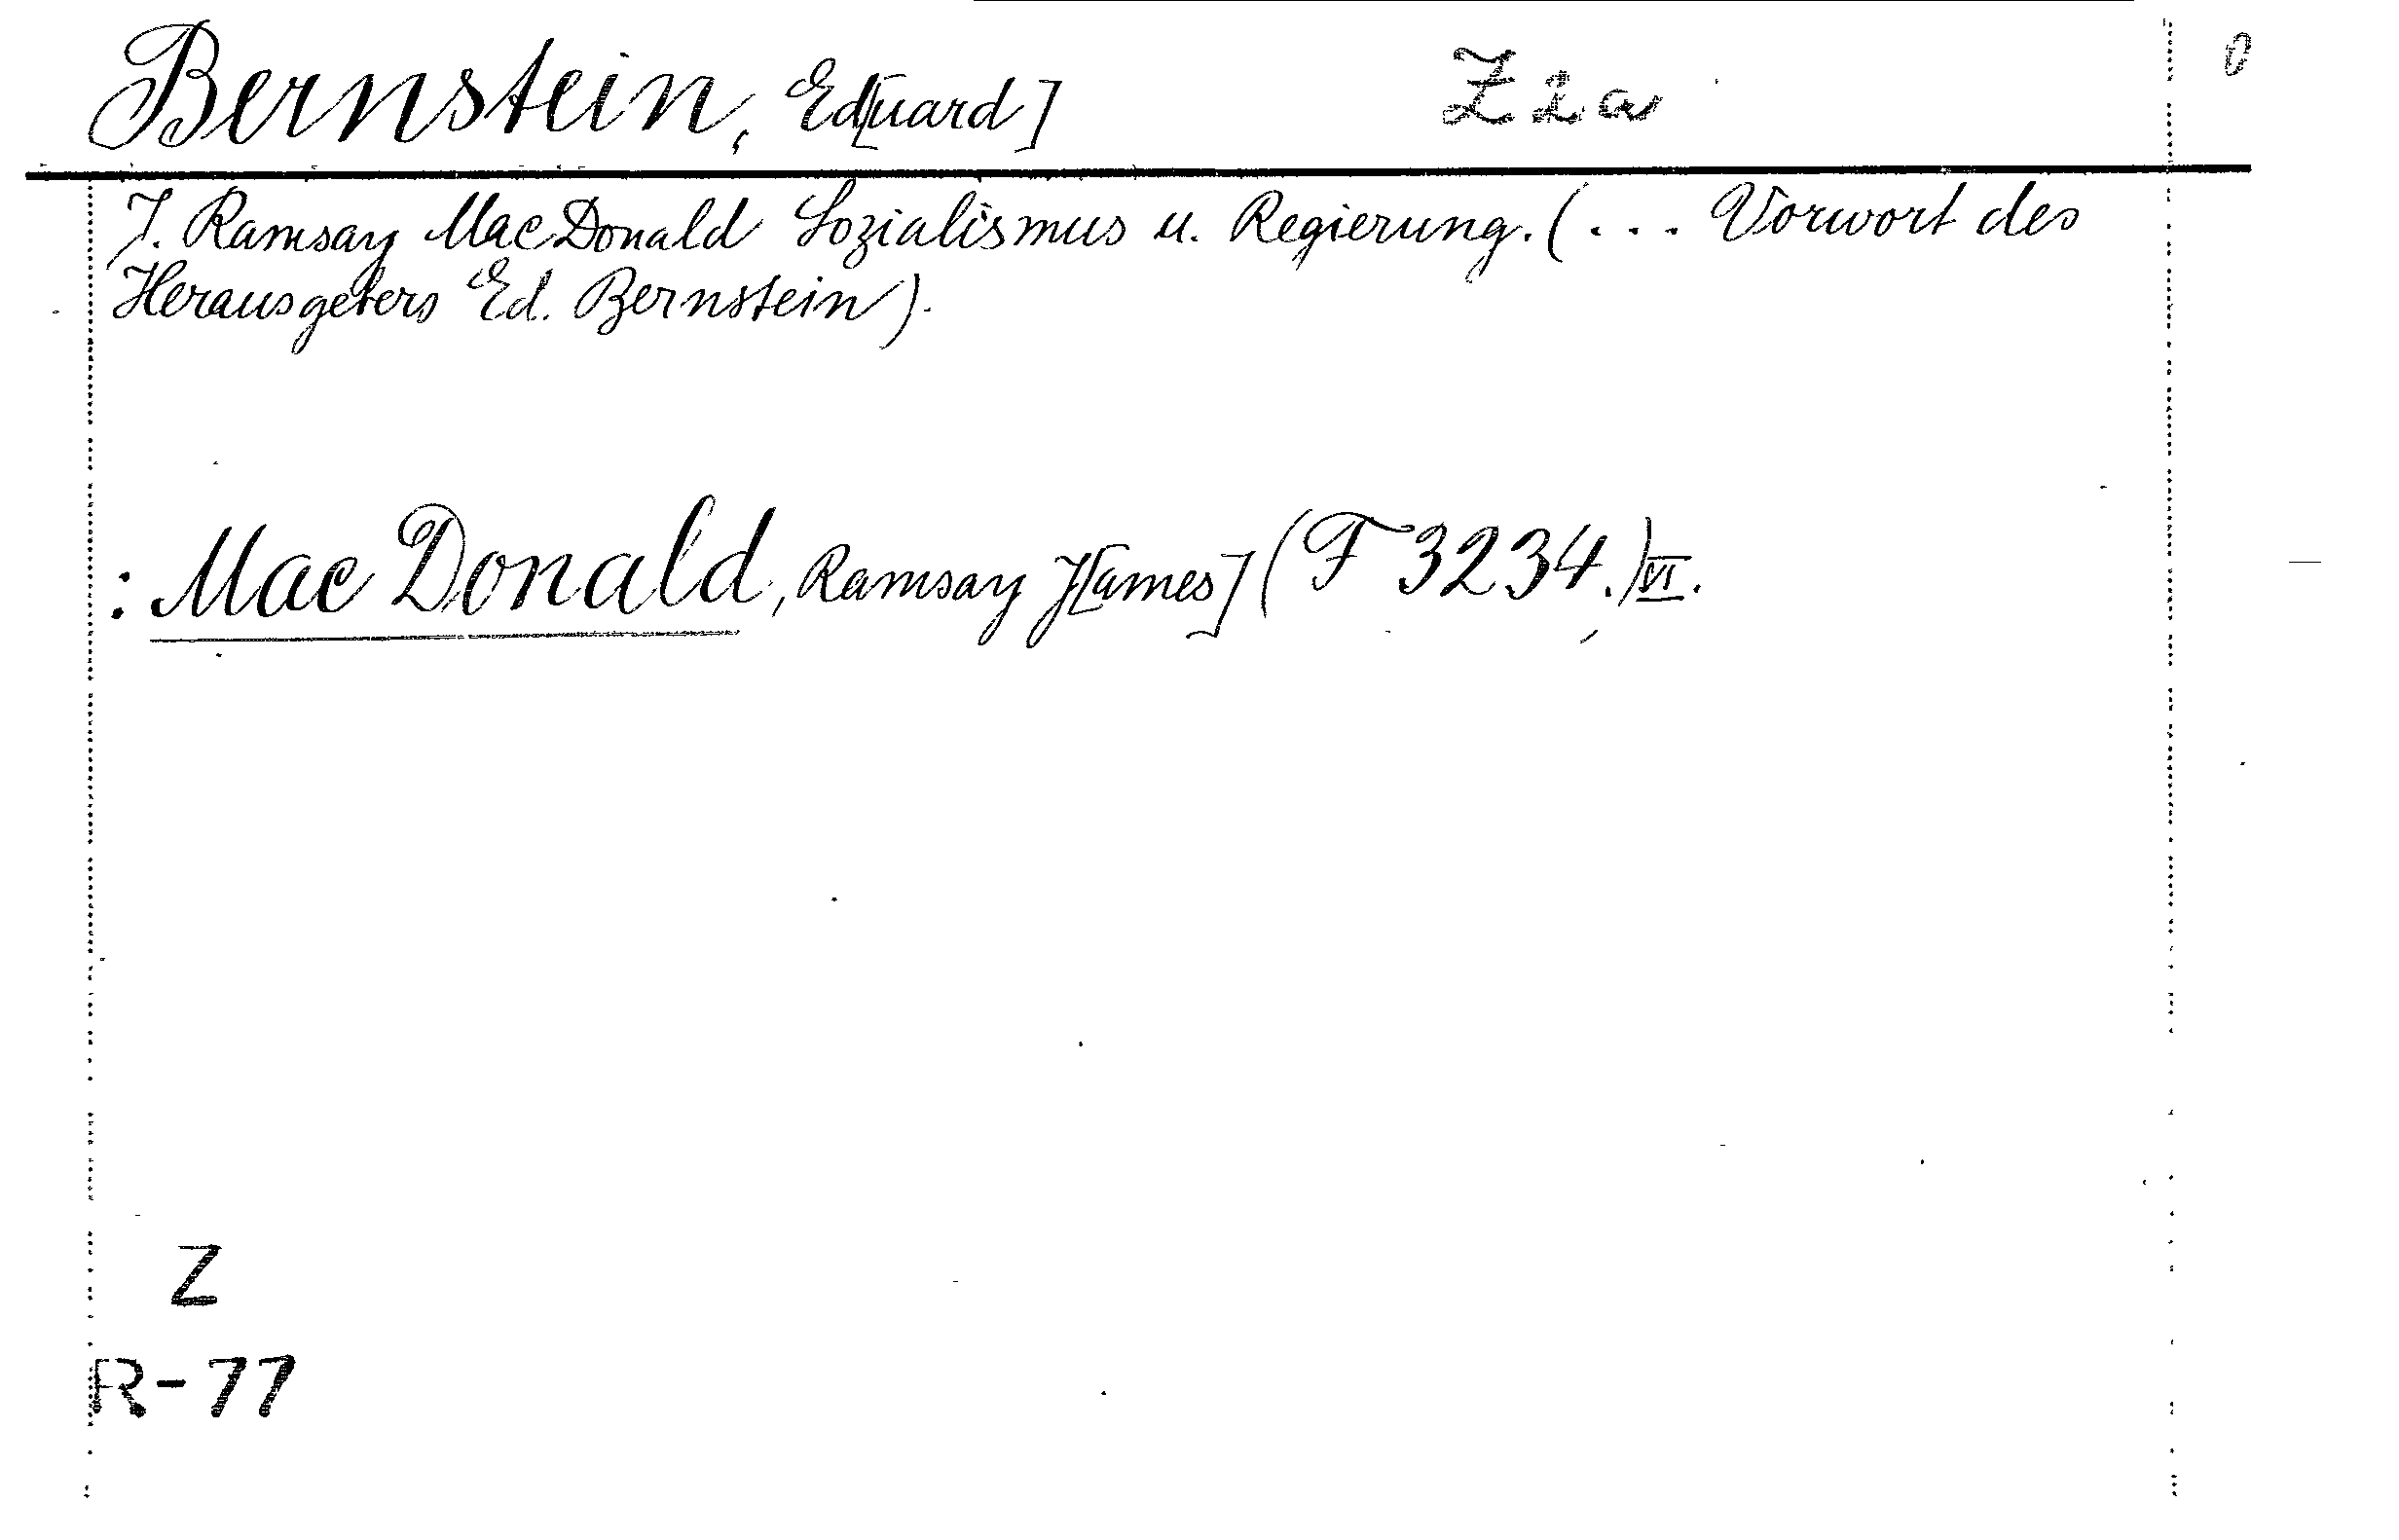 Bernstein, Ed[uard] Z 2 a 0
J. Ramsay MacDonald Sozialismus u. Regierung. (... Vorwort des
Herausgebers Ed. Bernstein).
: Mac Donald, Ramsay J[ames] (F 3234.) VI.
Z
R-77